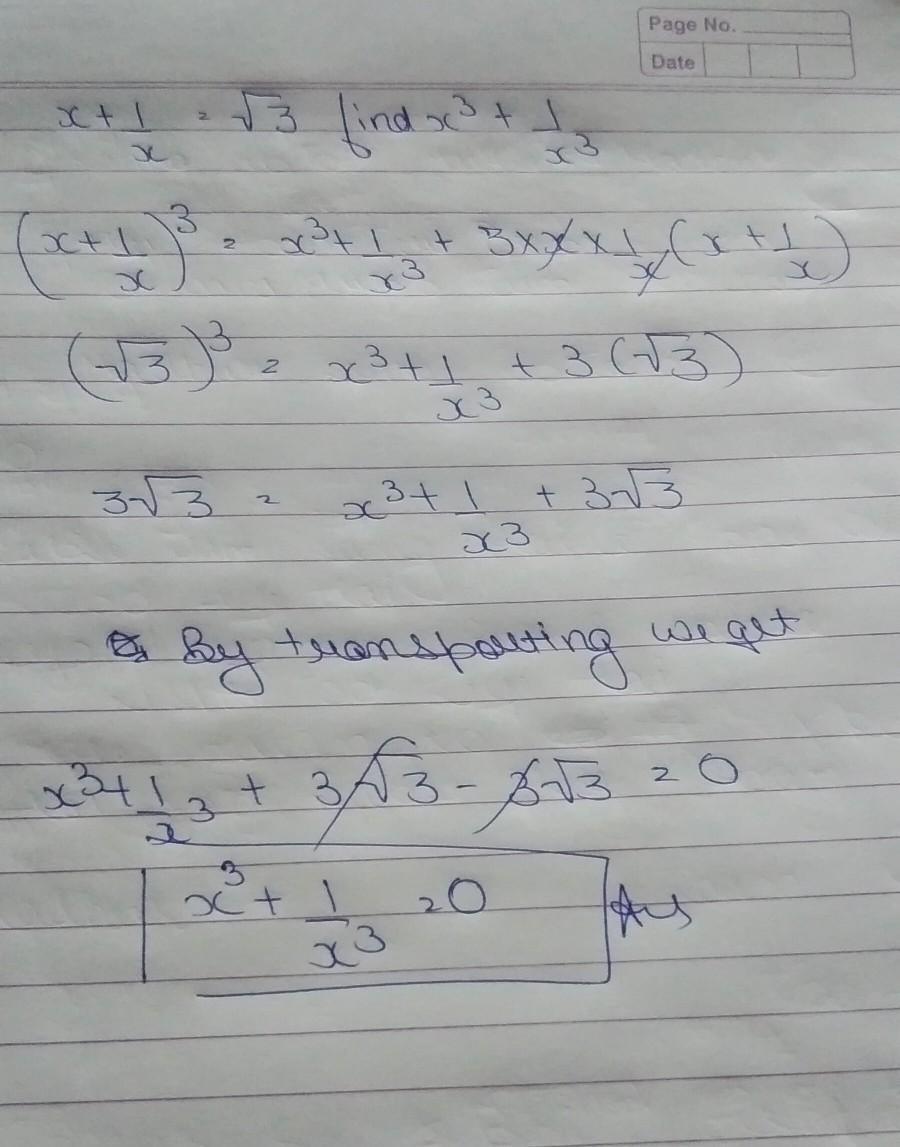 Page No.
Date
x + 1/x = √3 find x³ + 1/x³
(x + 1/x)³ = x³ + 1/x³ + 3 × x × 1/x (x + 1/x)
(√3)³ = x³ + 1/x³ + 3 (√3)
3√3 = x³ + 1/x³ + 3√3
By transporting we get
x³ + 1/x³ + 3√3 - 3√3 = 0
x³ + 1/x³ = 0 Ans